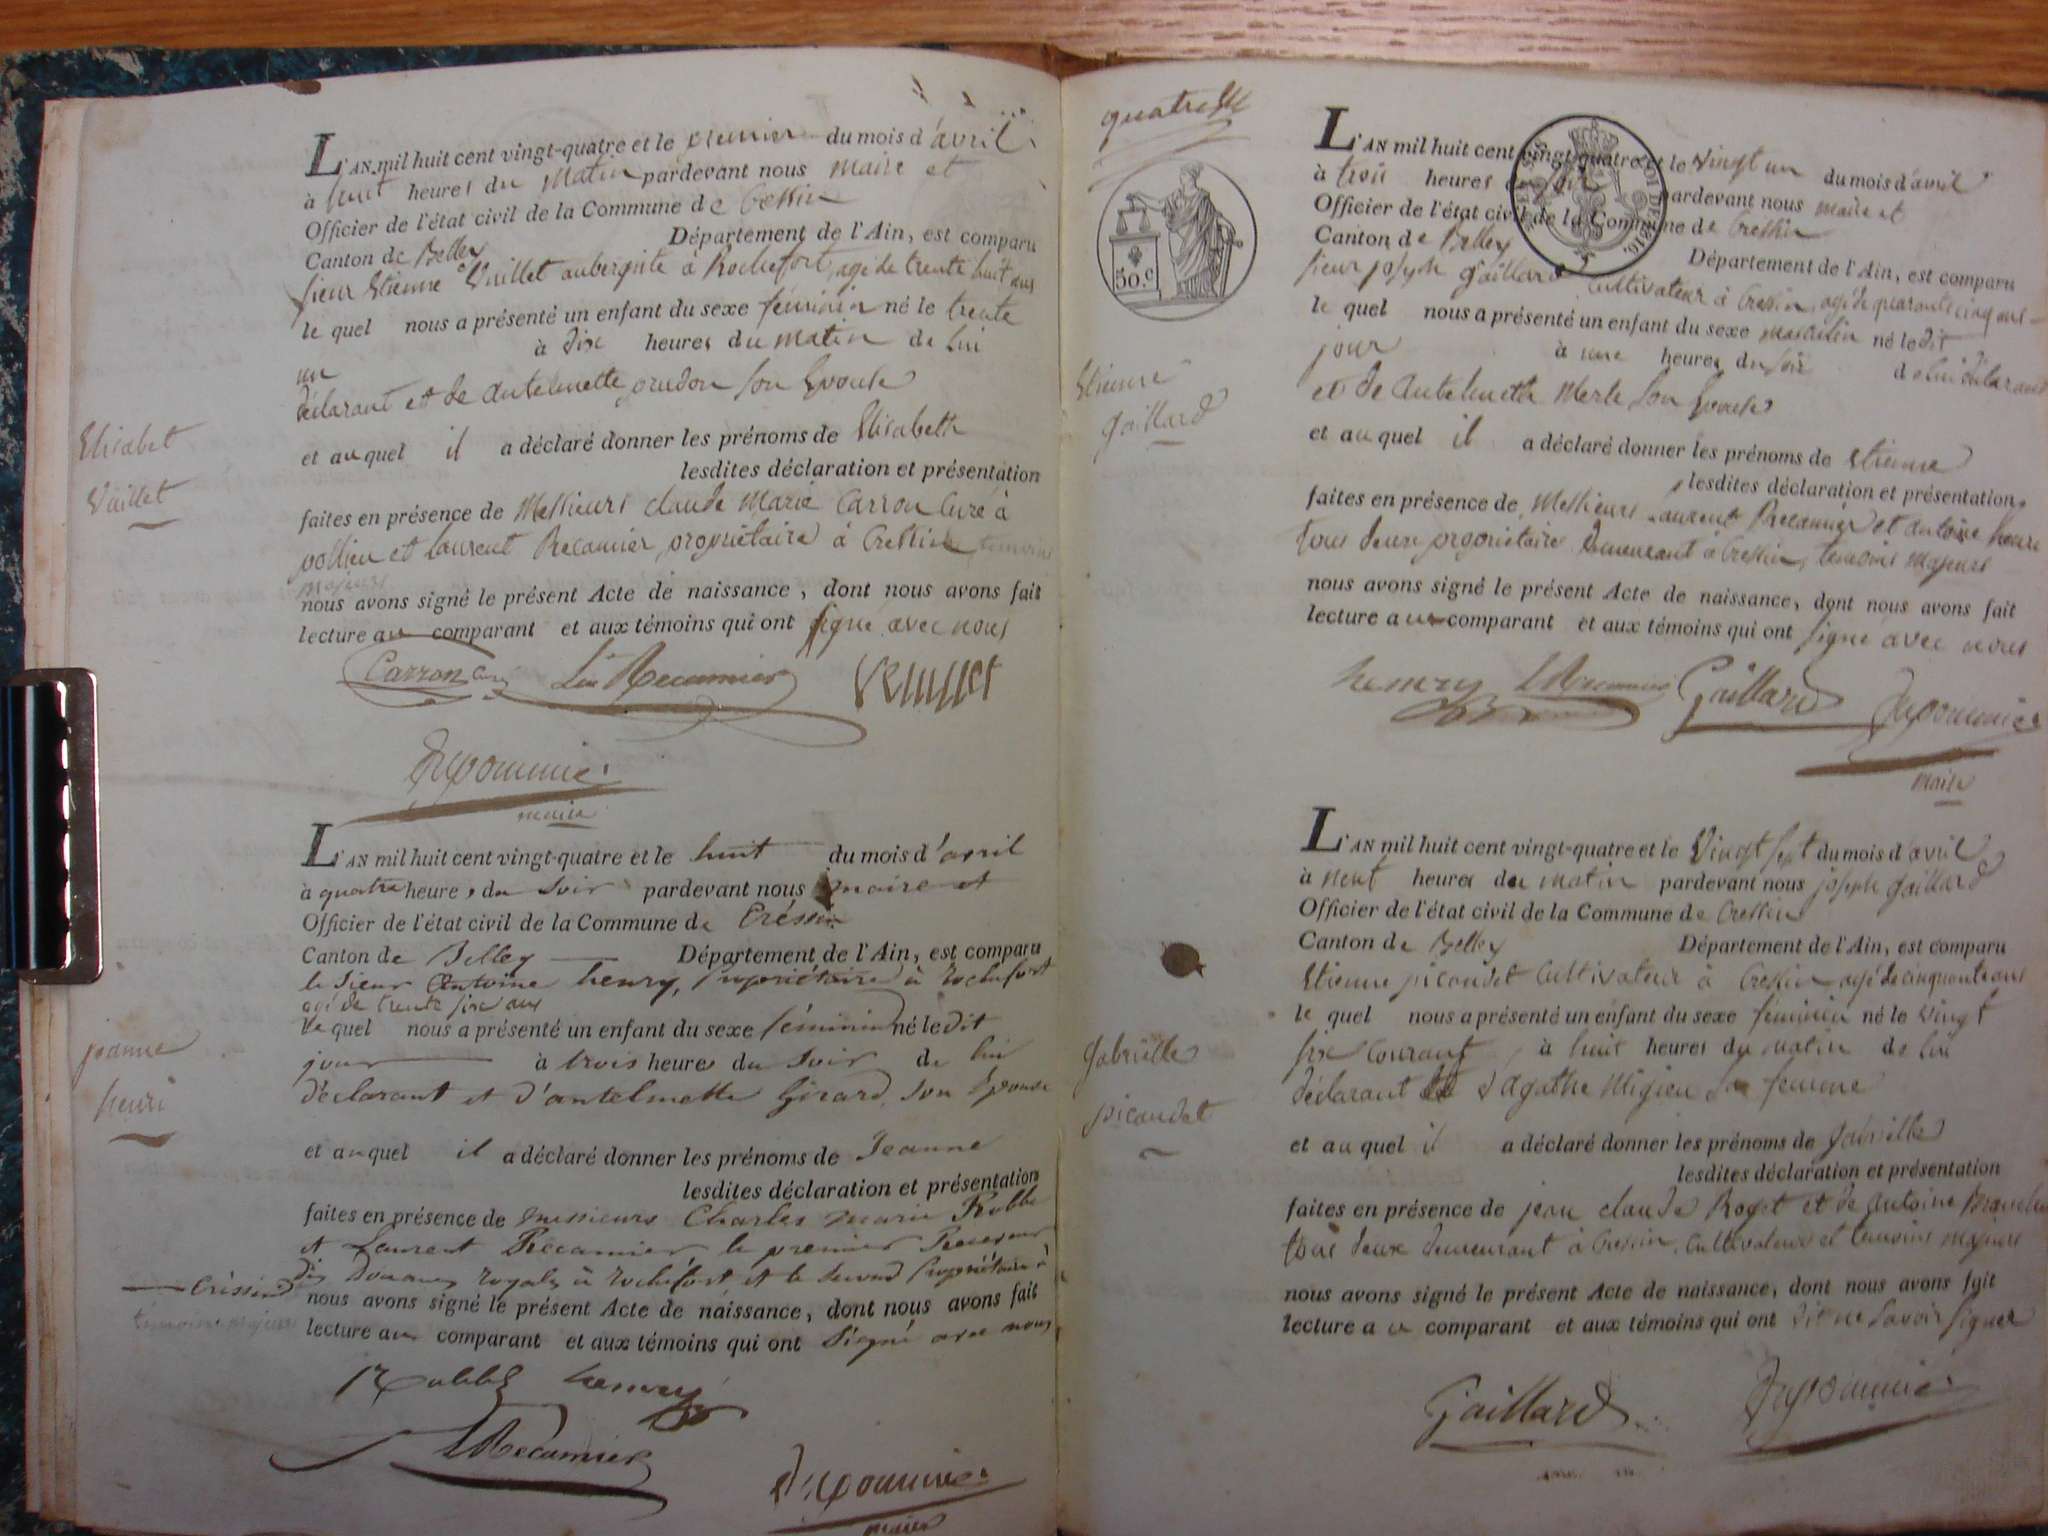 L'AN mil huit cent vingt-quatre et le premier du mois d'avril
à huit heures du matin pardevant nous maire et
Officier de l'état civil de la Commune de Cressin
Canton de Belley Département de l'Ain, est comparu
sieur Etienne Vuillet aubergiste à Rochefort, agé de trente huit ans
le quel nous a présenté un enfant du sexe féminin né le trente
un à dix heures du matin de lui
déclarant et de antelmette son Epouse
Elisabet
Vuillet
et auquel il a déclaré donner les prénoms de Elisabeth
lesdites déclaration et présentation
faites en présence de Messieurs claude Marie Carron Curé à
pollieu et laurent Recamier, propriétaire à Cressin temoins
majeurs
nous avons signé le présent Acte de naissance, dont nous avons fait
lecture au comparant et aux témoins qui ont signé avec nous
Carron Curé Lt Recamier Vuillet
maire
L'AN mil huit cent vingt-quatre et le huit du mois d'avril
à quatre heures du soir pardevant nous maire et
Officier de l'état civil de la Commune de Créssin
Canton de Belley Département de l'Ain, est comparu
le sieur Antoine henry, propriétaire à rochefort
agé de trente six ans
le quel nous a présenté un enfant du sexe féminin né le dit
jour à trois heures du soir de lui
déclarant et d'antelmette Girard, son Epouse
joanne
henri
et auquel il a déclaré donner les prénoms de Jeanne
lesdites déclaration et présentation
faites en présence de messieurs Charles marie Rubbe
et Laurent Récamier, le premier Receveur
des Douanes royales à rochefort et le second propriétaire à
Créssin
témoins majeurs
nous avons signé le présent Acte de naissance, dont nous avons fait
lecture au comparant et aux témoins qui ont signé avec nous
henry
LRecamier
maire
quatre
50.c
L'AN mil huit cent vingt-quatre et le vingt un du mois d'avril
à trois heures du soir pardevant nous maire et
Officier de l'état civil de la Commune de Cressin
Canton de Belley Département de l'Ain, est comparu
sieur joseph gaillard, cultivateur à Cressin, agé de quarante cinq ans
le quel nous a présenté un enfant du sexe masculin né le dit
jour à une heures du soir de lui déclarant
et de antelmette Merle son Epouse
Etienne
gaillard
et auquel il a déclaré donner les prénoms de Etienne
lesdites déclaration et présentation
faites en présence de Messieurs Laurent Recamier et antoine henri
tous deux propriétaire demeurant à Cressin, temoins majeurs
nous avons signé le présent Acte de naissance, dont nous avons fait
lecture au comparant et aux témoins qui ont signé avec nous
henry LRecamier Gaillard
maire
L'AN mil huit cent vingt-quatre et le vingt sept du mois d'avril
à neuf heures du matin pardevant nous joseph gaillard
Officier de l'état civil de la Commune de Cressin
Canton de Belley Département de l'Ain, est comparu
Etienne picaudet cultivateur à Cressin agé de cinquante ans
le quel nous a présenté un enfant du sexe féminin né le vingt
six courant, à huit heures du matin de lui
déclarant d'agathe Migieu sa femme
Gabrielle
picaudet
et auquel il a déclaré donner les prénoms de Gabrielle
lesdites déclaration et présentation
faites en présence de jean claude Roget et de antoine
tous deux demeurant à Cressin, cultivateurs et temoins majeurs
nous avons signé le présent Acte de naissance, dont nous avons fait
lecture au comparant et aux témoins qui ont dit ne savoir signer
Gaillard